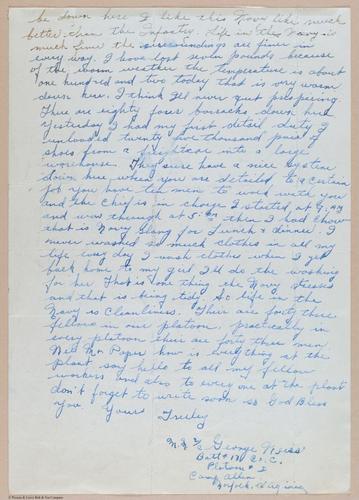 be down here I like this Navy life much
better then the Infantry. Life in the Navy is
much finer the surroundings are finer in
every way. I have lost seven pounds because
of the warm weather the temperature is about
one hundred and two today that is very warm
down here I think I'll never quit prespering.
There are eighty four barracks down here
Yesterday I had my first detail duty I
unloaded twenty five thousand pairs of
shoes from a freightcare into a large
warehouse. They sure have a nice system
down here when you are detailed to a certain
job you have ten men to work with you
and the Chief is in charge I started at
and was through at 5. then I had Chow
that is Navy Slang for Lunch & dinner. I
never washed so much clothes in all my
life every day I wash clothes when I get
back home to my girl I'll do the washing
for her That is one thing the Navy stresses
and that is being tidy &c life in the
Navy is Cleanliness. Their are forty three
fellows in our platoon, practically in
every platoon there are forty three men
Well Mr. how is everything at the
plant say hello to all my fellow
workers and also to every one at the plant
don't forget to write soon so God Bless
You Yours Truley
George
Batt # 17
Platoon # 2
Camp Allen
Norfolk Virginia